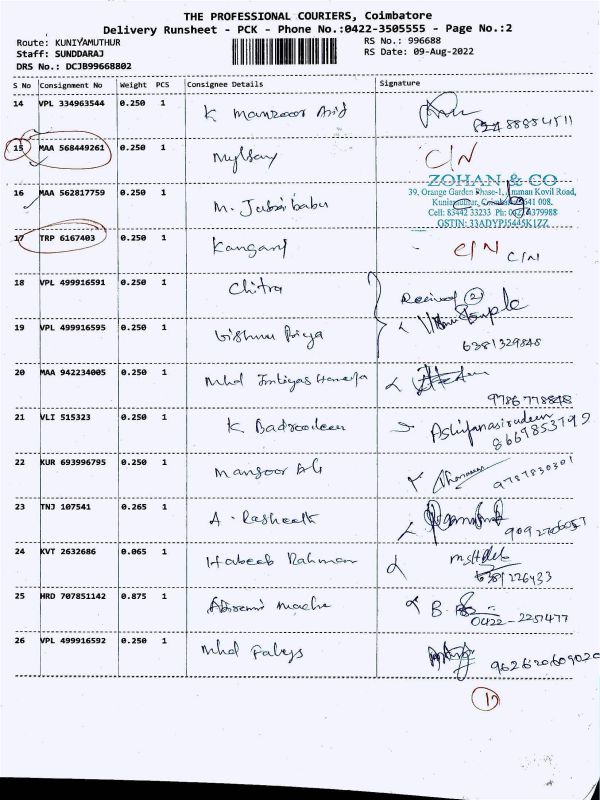 THE PROFESSIONAL COURIERS, Coimbatore
Delivery Runsheet - PCK - Phone No.:0422-3505555 - Page No.:2
Route: KUNIYAMUTHUR RS No.: 996688
Staff: SUNDDARAJ RS Date: 09-Aug-2022
DRS No.: DCJB99668802
S No Consignment No Weight PCS Consignee Details Signature
14 VPL 334963544 0.250 1 K Manzoor
15 MAA 568449261 0.250 1 C/N
ZOHAN & CO
16 MAA 562817759 0.250 1 M. 39, Orange Garden Phase-1, Amman Kovil Road,
Kuniamuthur, Coimbatore 641 008.
Cell: 83442 33233 Ph:
GSTIN: 33ADYPJ5445K1ZZ
17 TRP 6167403 0.250 1 Kangary C/N C/N
18 VPL 499916591 0.250 1 Chitra Received 2
19 VPL 499916595 0.250 1 Vishnu Priya
6381329848
20 MAA 942234005 0.250 1 Mhd
9786778848
21 VLI 515323 0.250 1 K Badroodeen
22 KUR 693996795 0.250 1 Mansoor Ali 9787830301
23 TNJ 107541 0.265 1 A. Rasheeth
24 KVT 2632686 0.065 1 Habeeb Rahman
6381226433
25 HRD 707851142 0.875 1 B.
0422-2257477
26 VPL 499916592 0.250 1 Mhd 962620609020